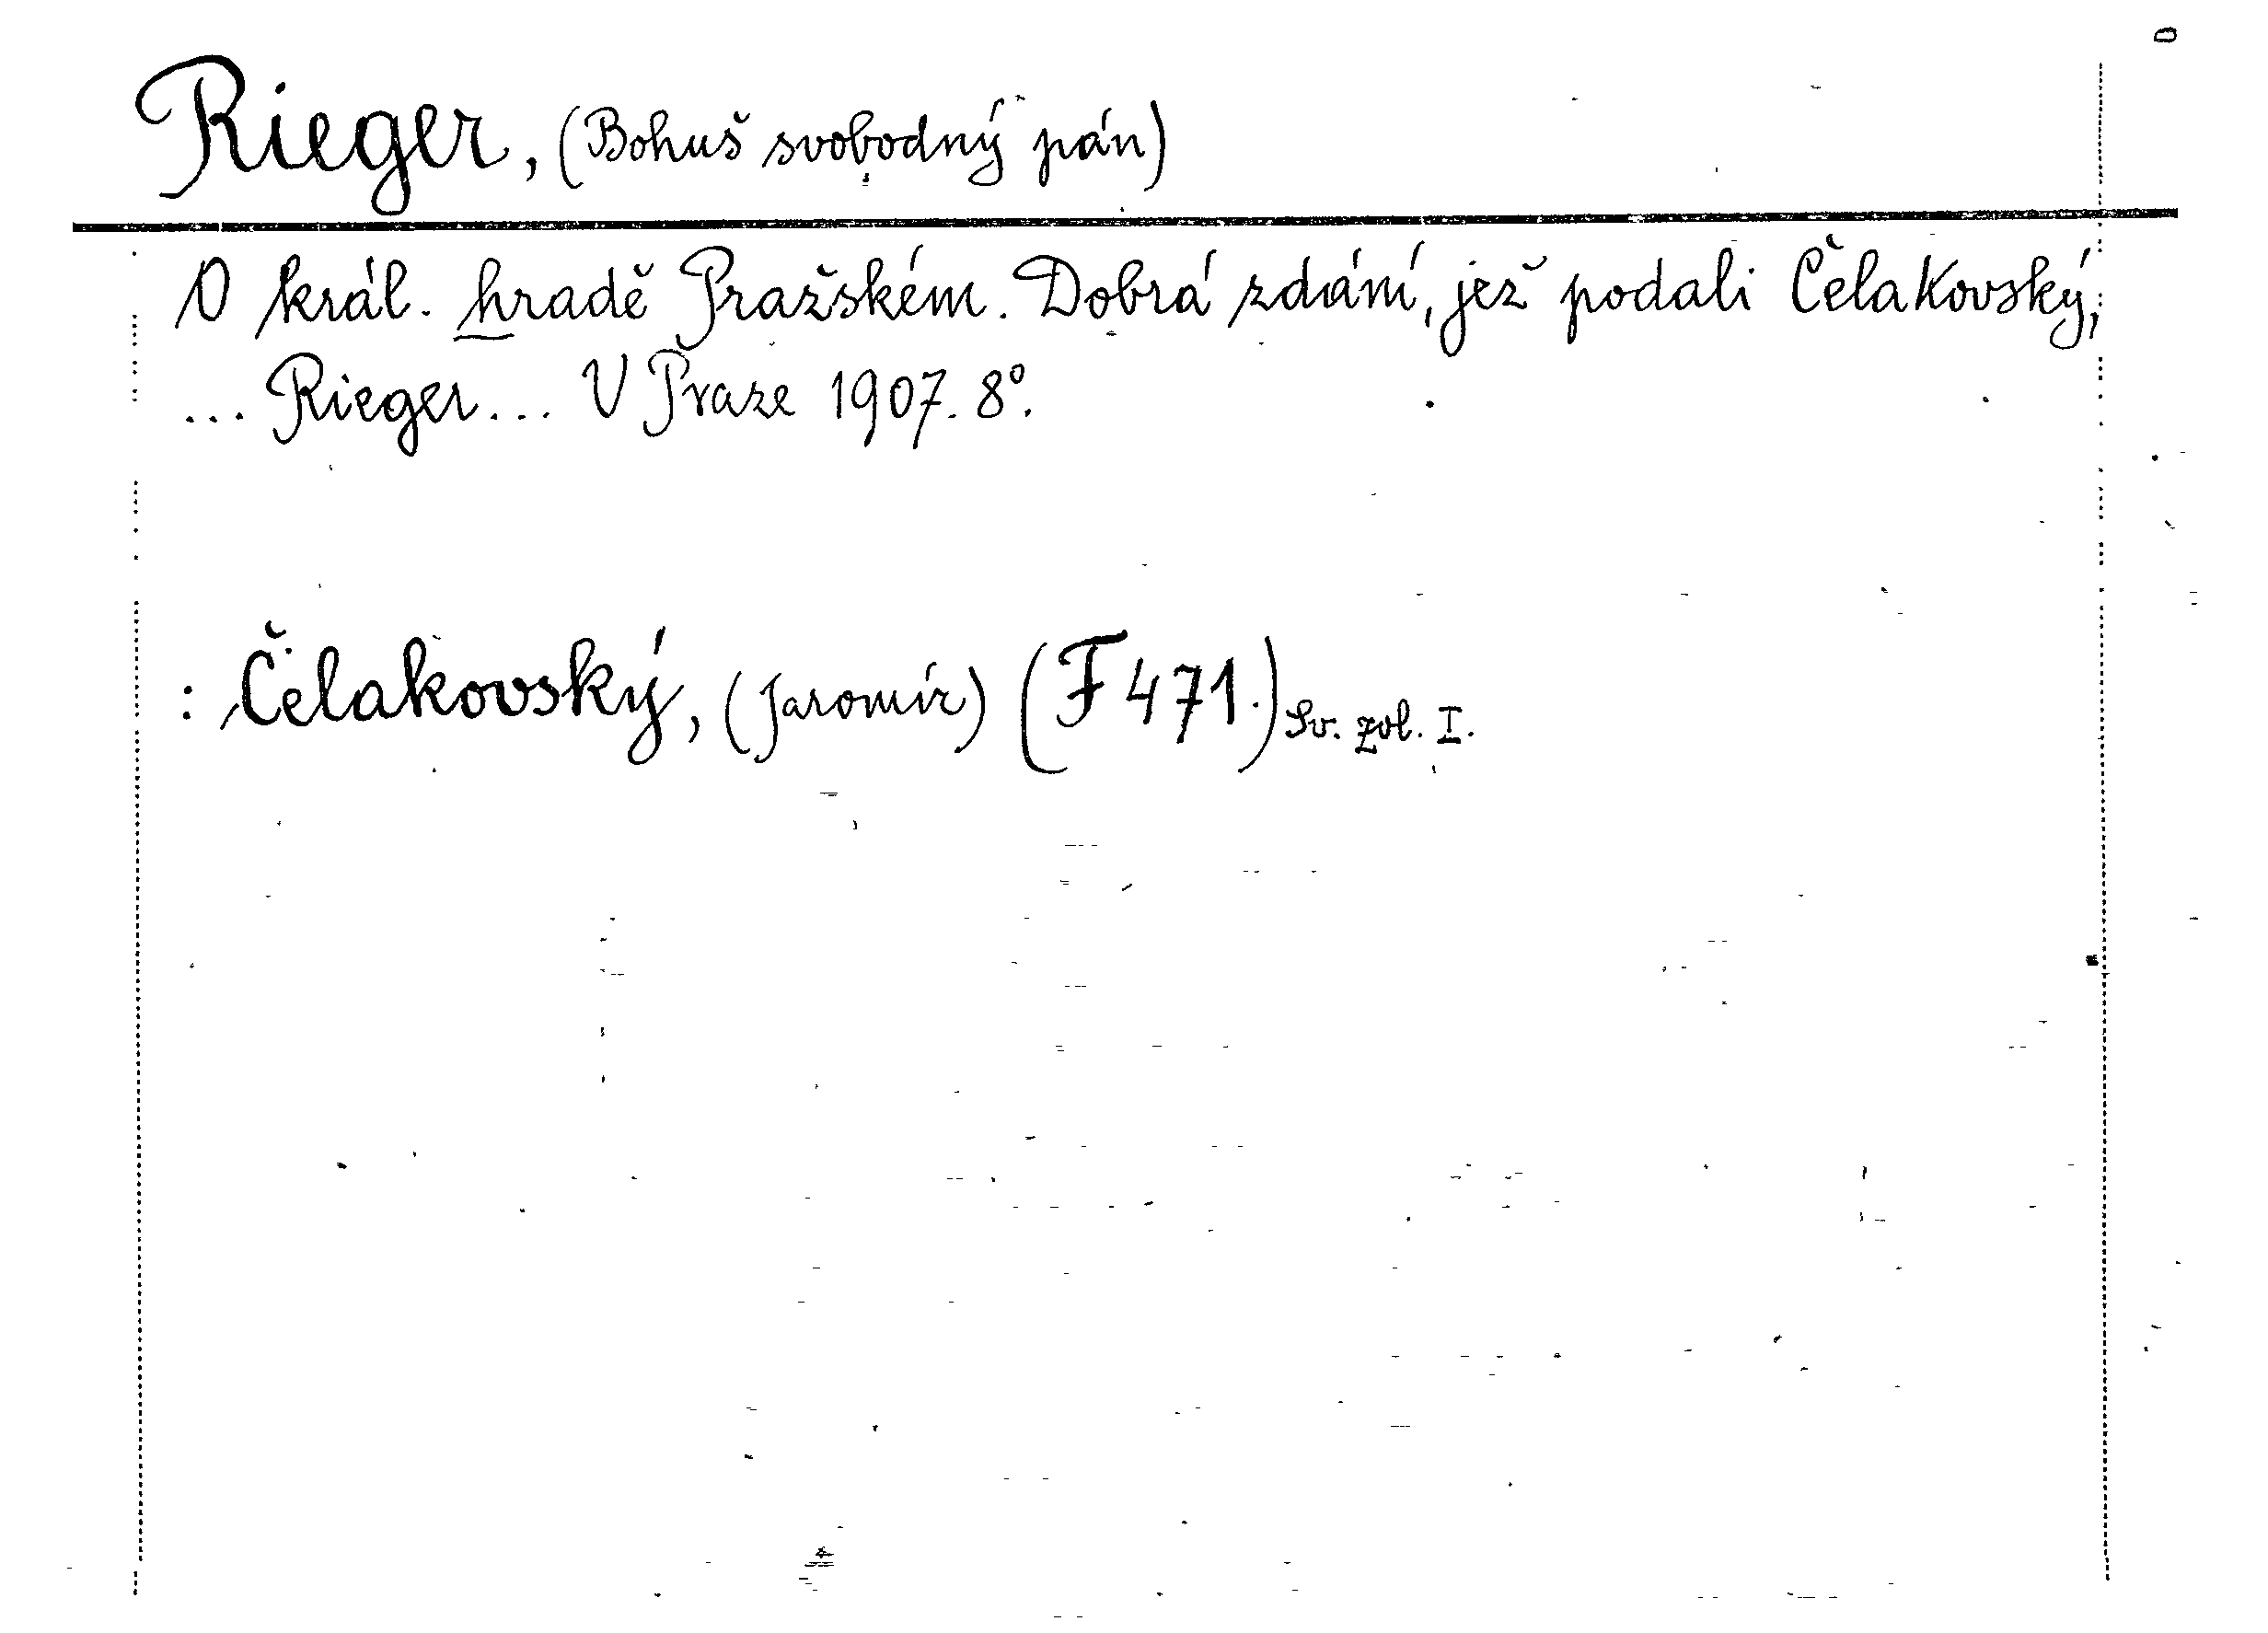 Rieger, (Bohuš svobodný pán)
O král. hradě Pražském. Dobrá zdání, jež podali Čelakovský,
... Rieger... V Praze 1907. 8°.
: Čelakovský, (Jaromír) (F 471.) Sv. zol. I.